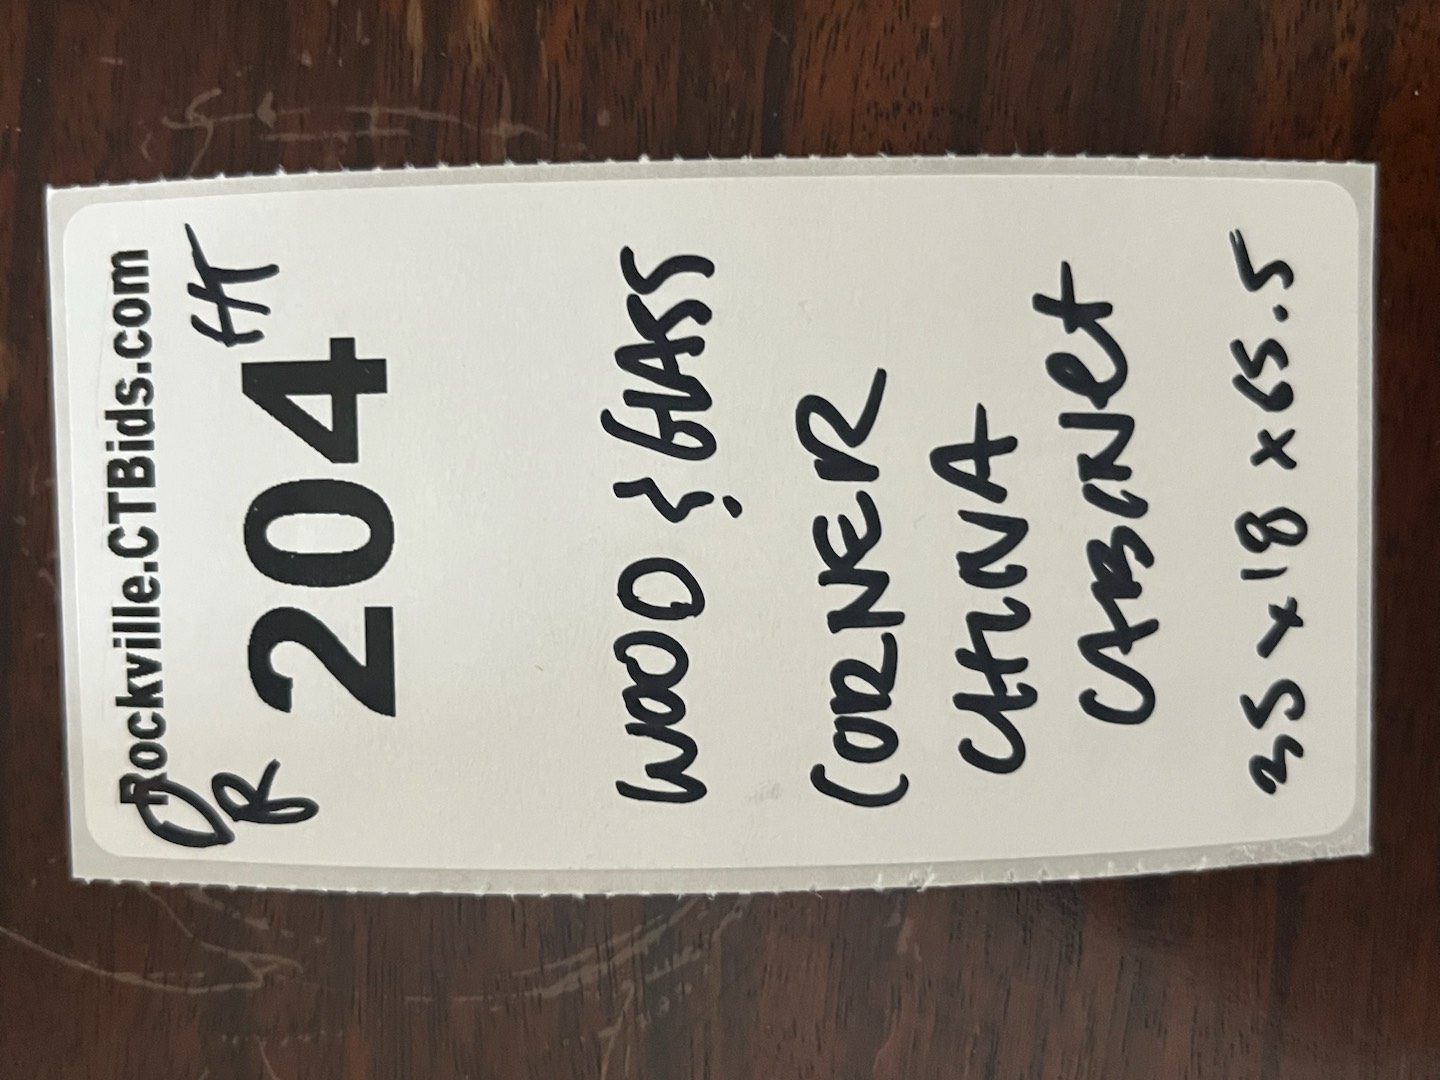 Rockville.CTBids.com
DR 204 HT
WOOD & GLASS
CORNER
CHINA
CABINet
35 x 18 x 65.5